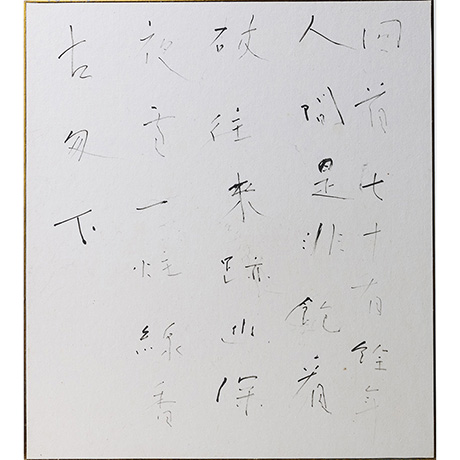 回首七十有餘年
人間是非飽看
破往來跡幽深
夜雪一炷線香
古匆下